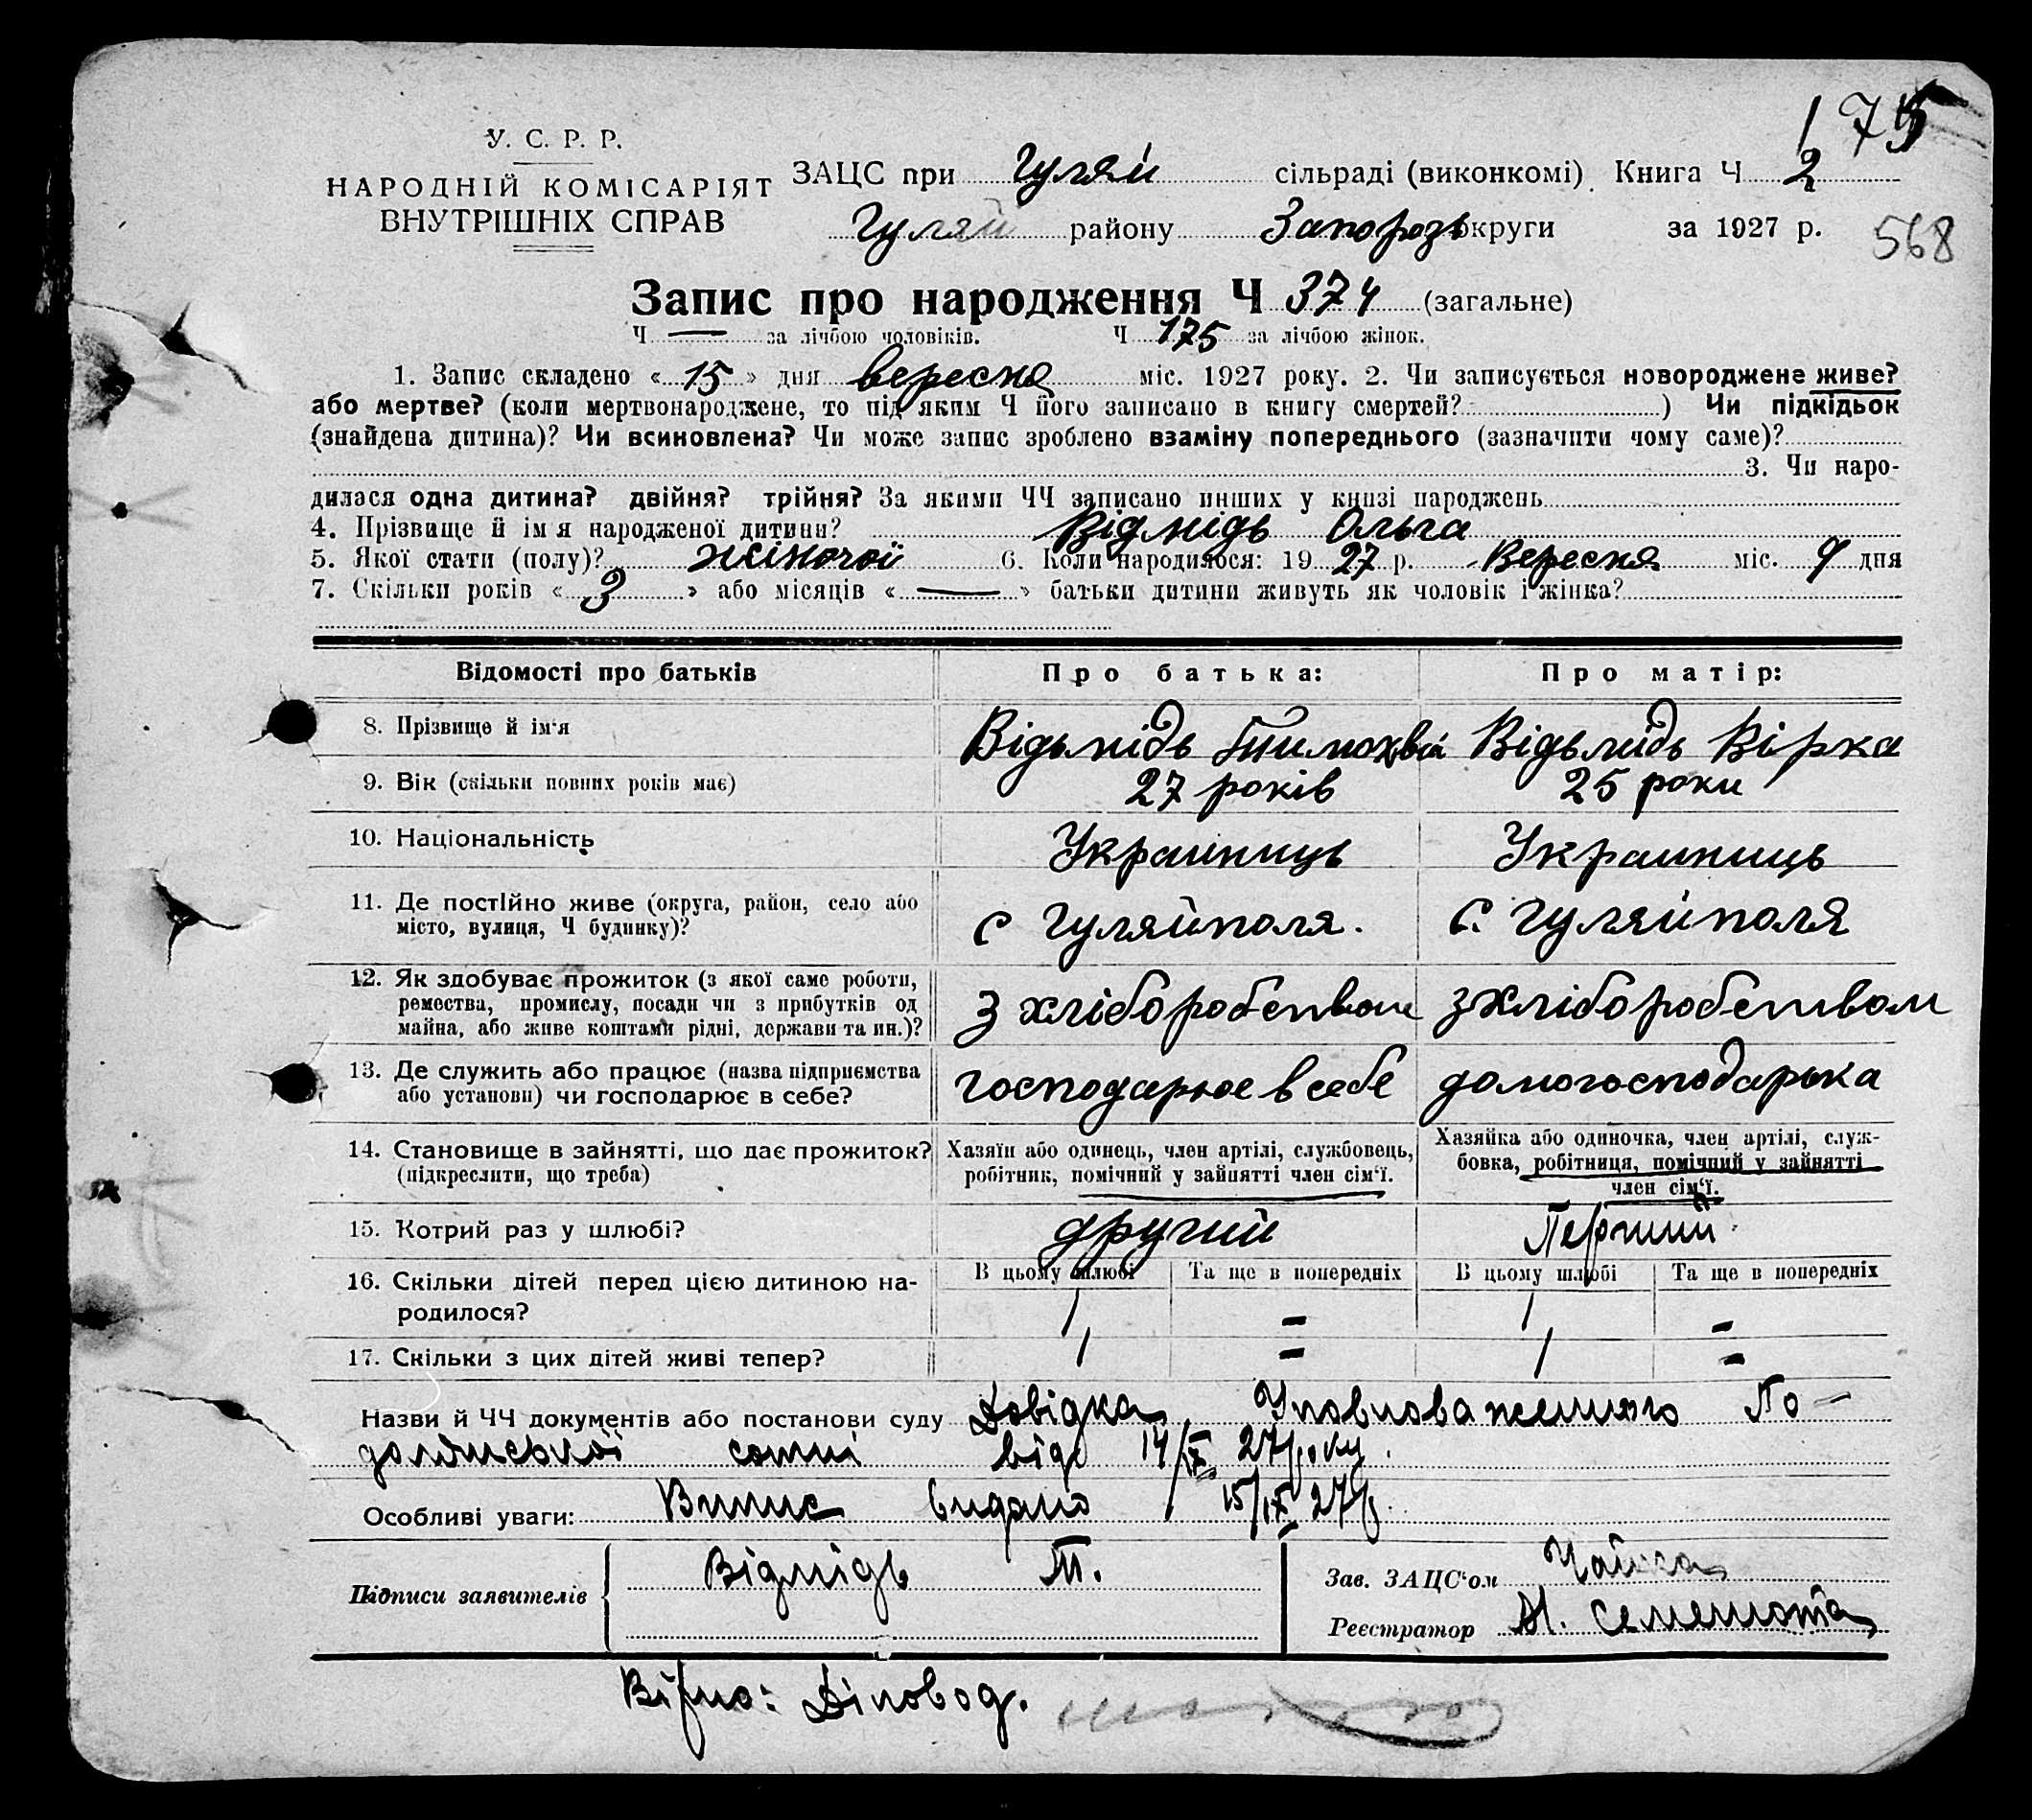 175
У. С. Р. Р.
НАРОДНІЙ КОМІСАРІЯТ
ВНУТРІШНІХ СПРАВ
ЗАЦС при Гуляй сільраді (виконкомі) Книга Ч 2
Гуляй району Запорозь округи за 1927 р.
568
Запис про народження Ч 374 (загальне)
Ч — за лічбою чоловіків. Ч 175 за лічбою жінок.
1. Запис складено « 15 » дня вересня міс. 1927 року. 2. Чи записується новороджене живе?
або мертве? (коли мертвонароджене, то під яким Ч його записано в книгу смертей? ) Чи підкідьок
(знайдена дитина)? Чи всиновлена? Чи може запис зроблено взаміну попереднього (зазначити чому саме)?
3. Чи наро-
дилася одна дитина? двійня? трійня? За якими ЧЧ записано инших у книзі народжень
4. Прізвище й ім я народженої дитини? Відмідь Ольга
5. Якої стати (полу)? жіночої 6. Коли народилося: 19 27 р. Вересня міс. 9 дня
7. Скільки років « 3 » або місяців « — » батьки дитини живуть як чоловік і жінка?
Відомості про батьків Про батька: Про матір:
8. Прізвище й ім‘я Відьмідь Тимохвій Відьмідь Вірка
9. Вік (скільки повних років має) 27 років 25 роки
10. Національність Украиниць Украиниць
11. Де постійно живе (округа, район, село або
місто, вулиця, Ч будинку)? с Гуляйполя. с. Гуляйполя
12. Як здобуває прожиток (з якої саме роботи,
ремества, промислу, посади чи з прибутків од
майна, або живе коштами рідні, держави та ин.)? з хліборобством з хліборобством
13. Де служить або працює (назва підприємства
або установи) чи господарює в себе? господарює в себе домогосподарька
14. Становище в зайнятті, що дає прожиток?
(підкреслити, що треба)
Хазяїн або одинець, член артілі, службовець,
робітник, помічний у зайнятті член сім‘ї.
Хазяйка або одиночка, член артілі, служ-
бовка, робітниця, помічний у зайнятті
член сім‘ї.
15. Котрий раз у шлюбі? другий Перший
16. Скільки дітей перед цією дитиною на-
родилося?
В цьому шлюбі Та ще в попередніх В цьому шлюбі Та ще в попередніх
1 = 1 =
17. Скільки з цих дітей живі тепер? 1 = 1 =
Назви й ЧЧ документів або постанови суду Довідка Уповноваженного По-
долянської сотні від 14/IX 27 року.
Особливі уваги: Випис видано 15/IX 27 р.
Підписи заявителів Відмідь Т.
Зав. ЗАЦС‘ом Чайка
Реєстратор
Вірно: Діловод.